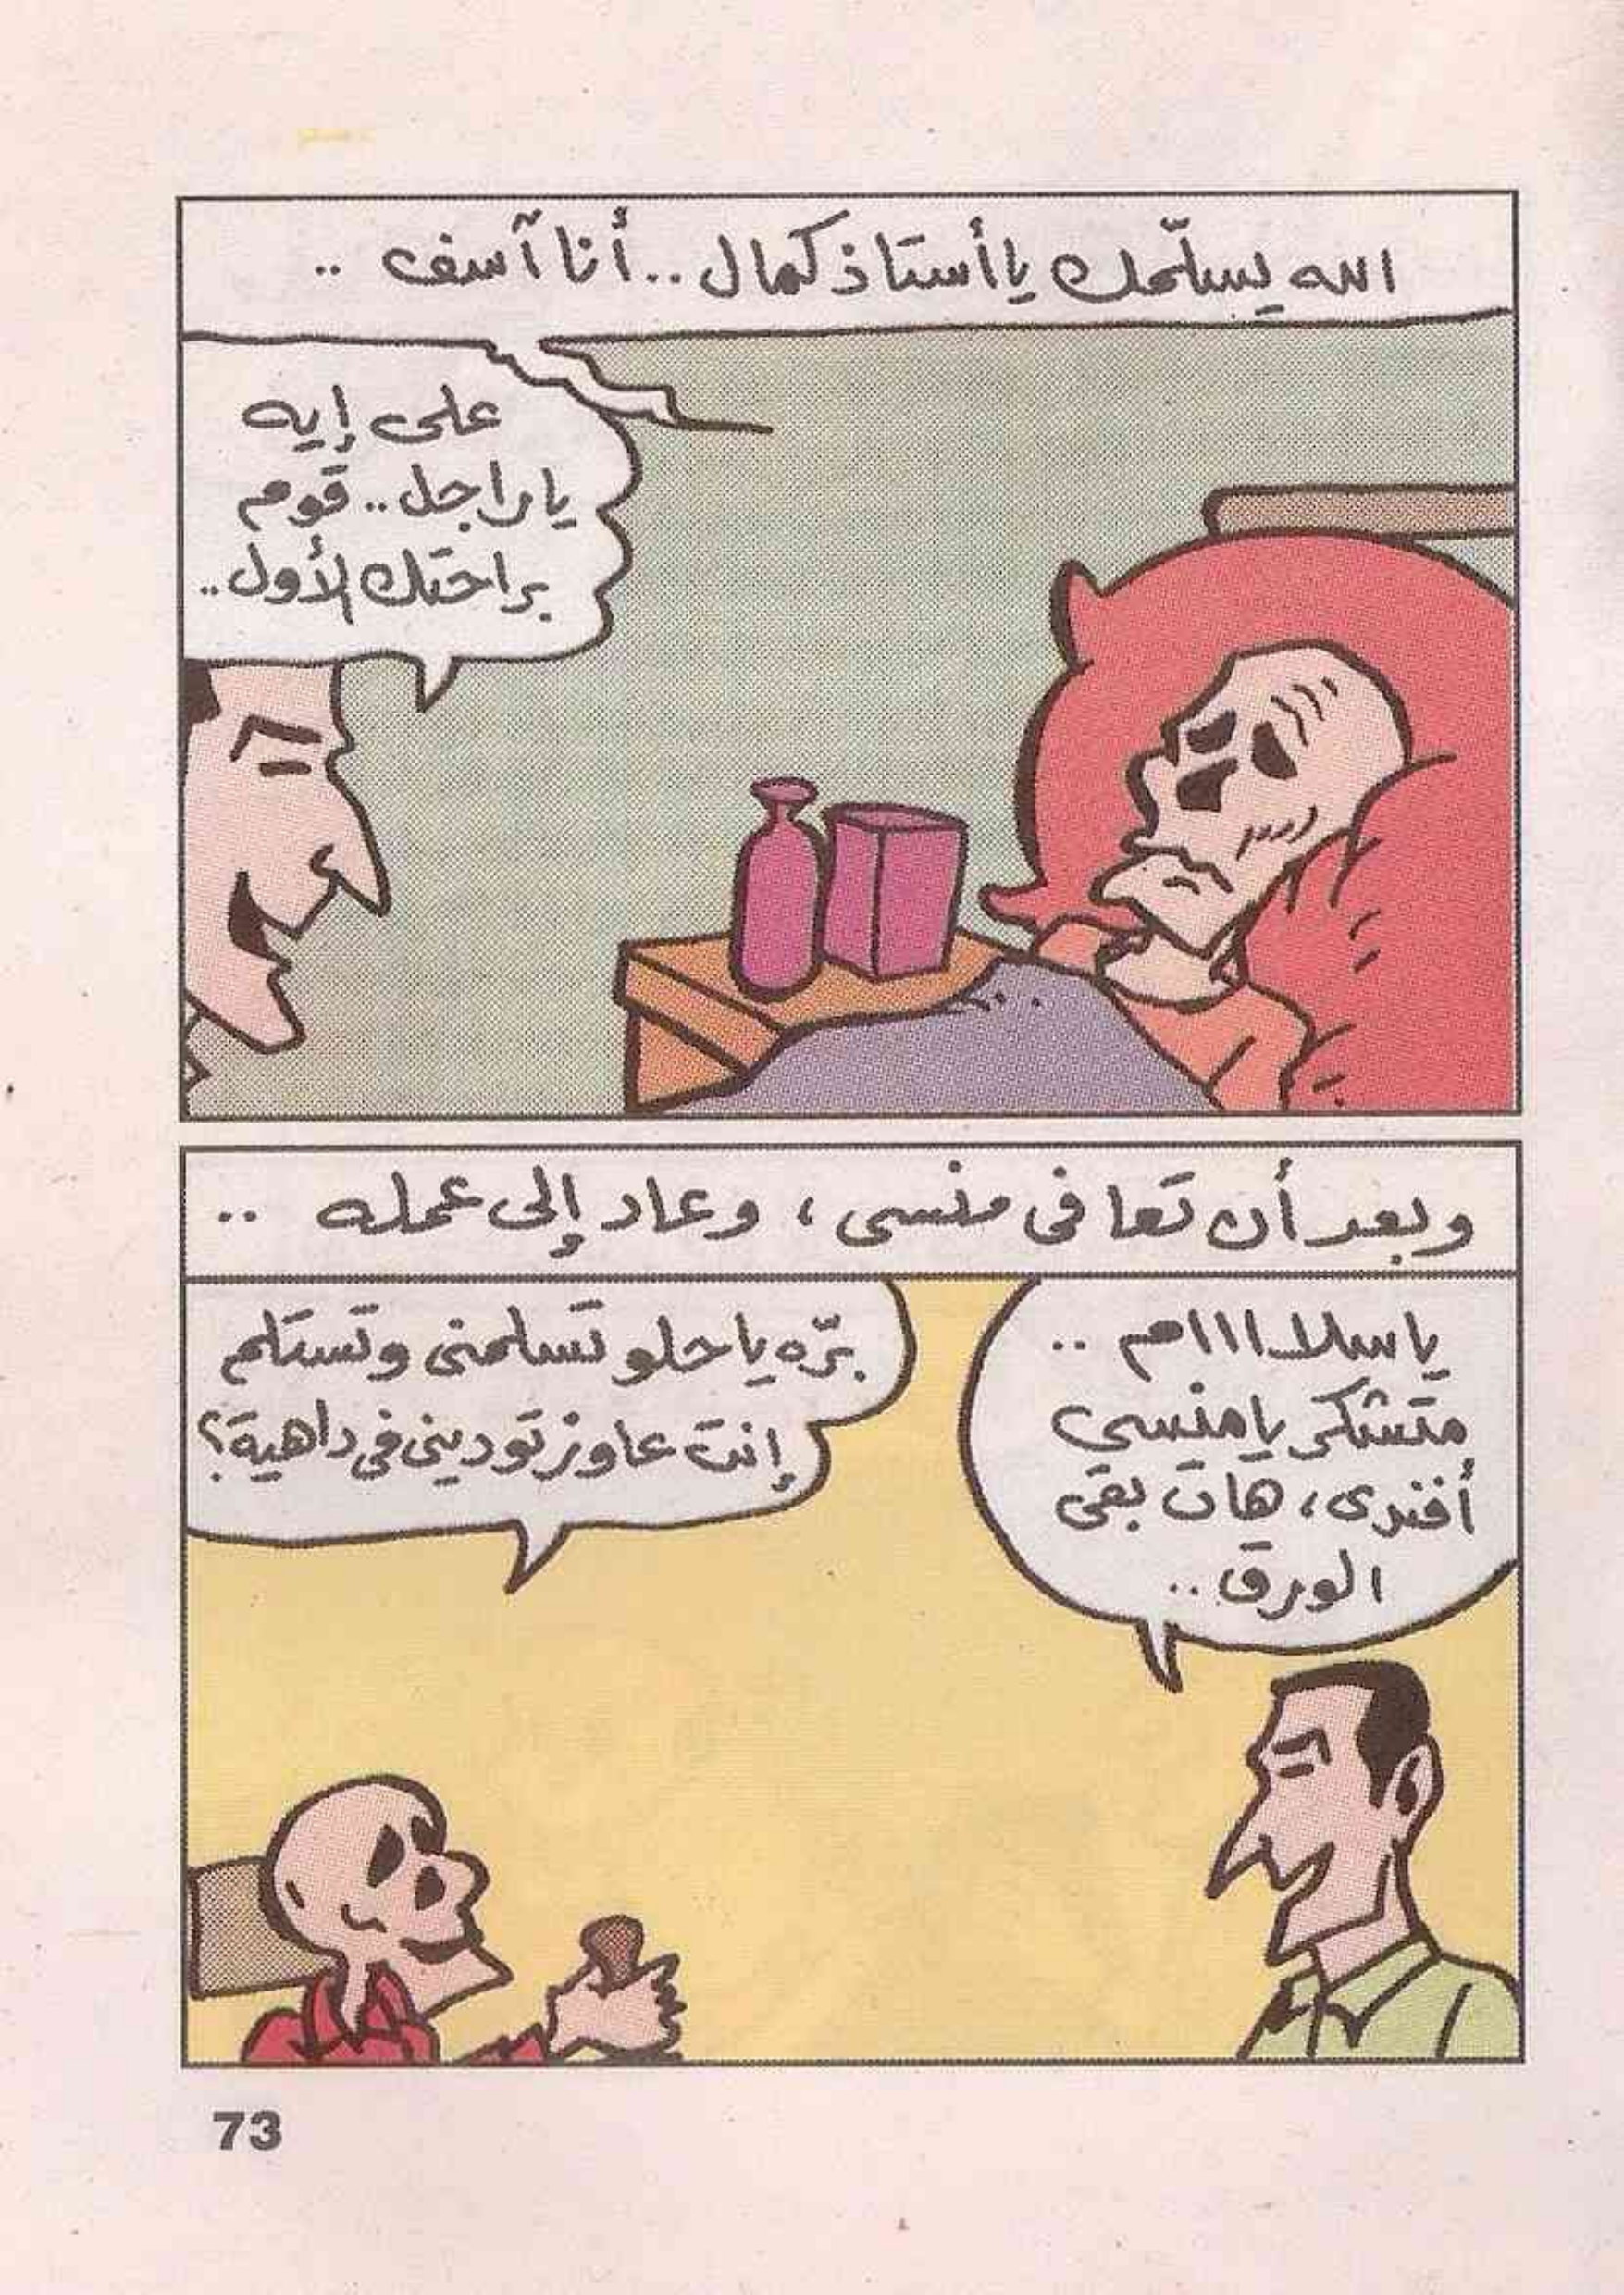 الله يسلّمك يا أستاذ كمال.. أنا آسف ..
على إيه
يا راجل.. قوم
براحتك الأول..
وبعد أن تعافى منسى، وعاد إلى عمله ..
يا سلااااام ..
متشكر يا منسي
أفندى، هات بقى
الورق..
برّه يا حلو تسلمنى وتستلم
إنت عاوز تودينى في داهية؟
73